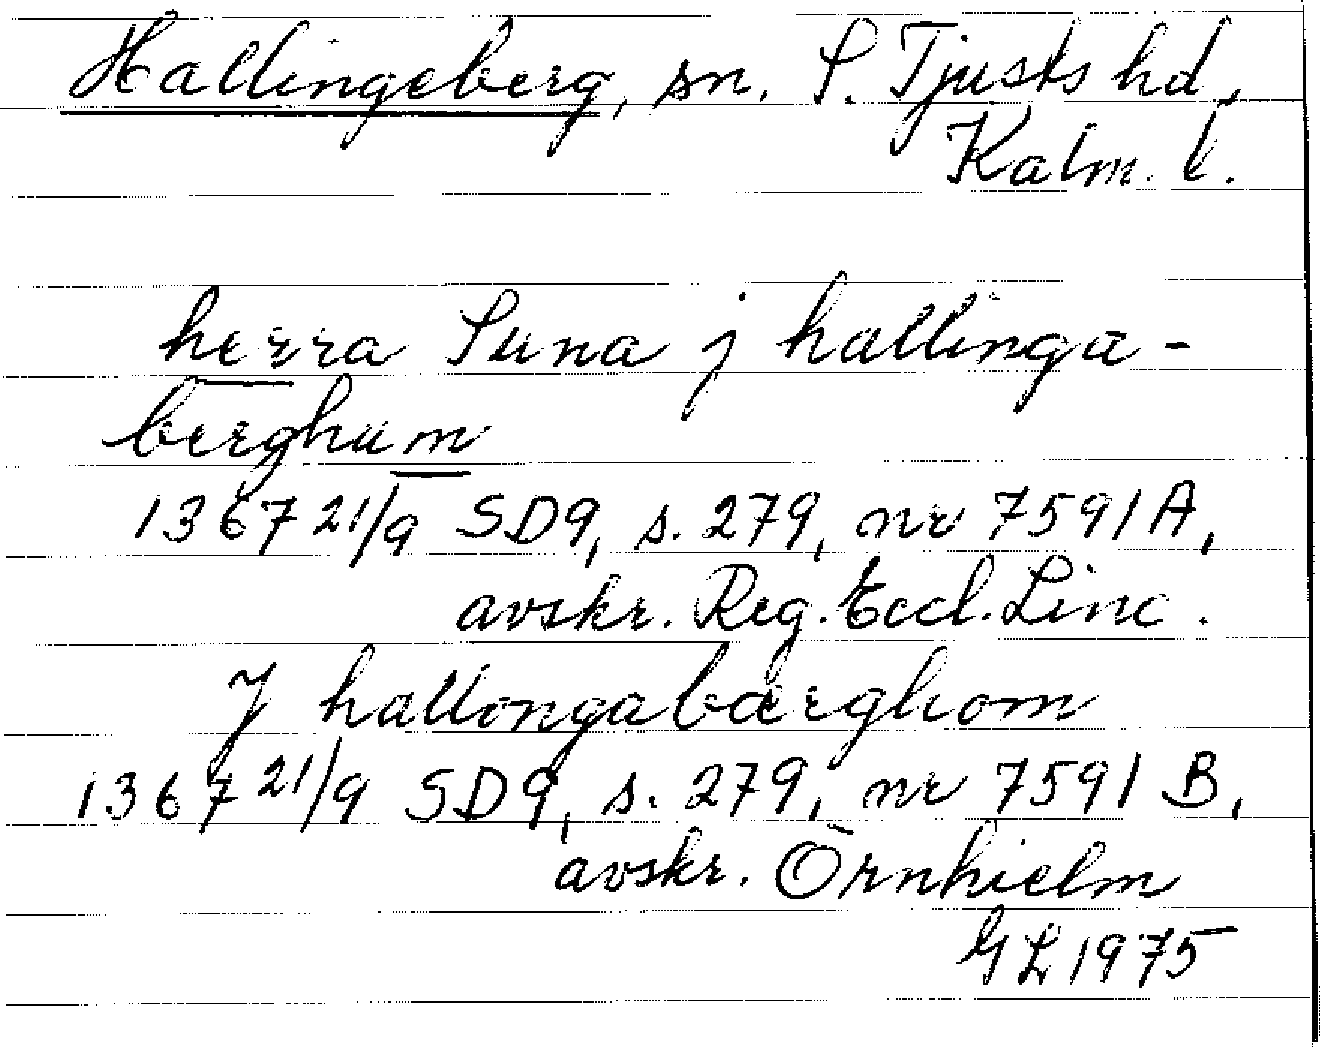 Hallingeberg, sn. S. Tjusts hd,
Kalm. l.
herra Suna j hallinga-
berghum
1367 21/9 SD9, s. 279, nr 7591A,
avskr. Reg. Eccl. Linc.
J hallongabærghom
1367 21/9 SD9, s. 279, nr 7591 B,
avskr. Örnhielm
GL 1975